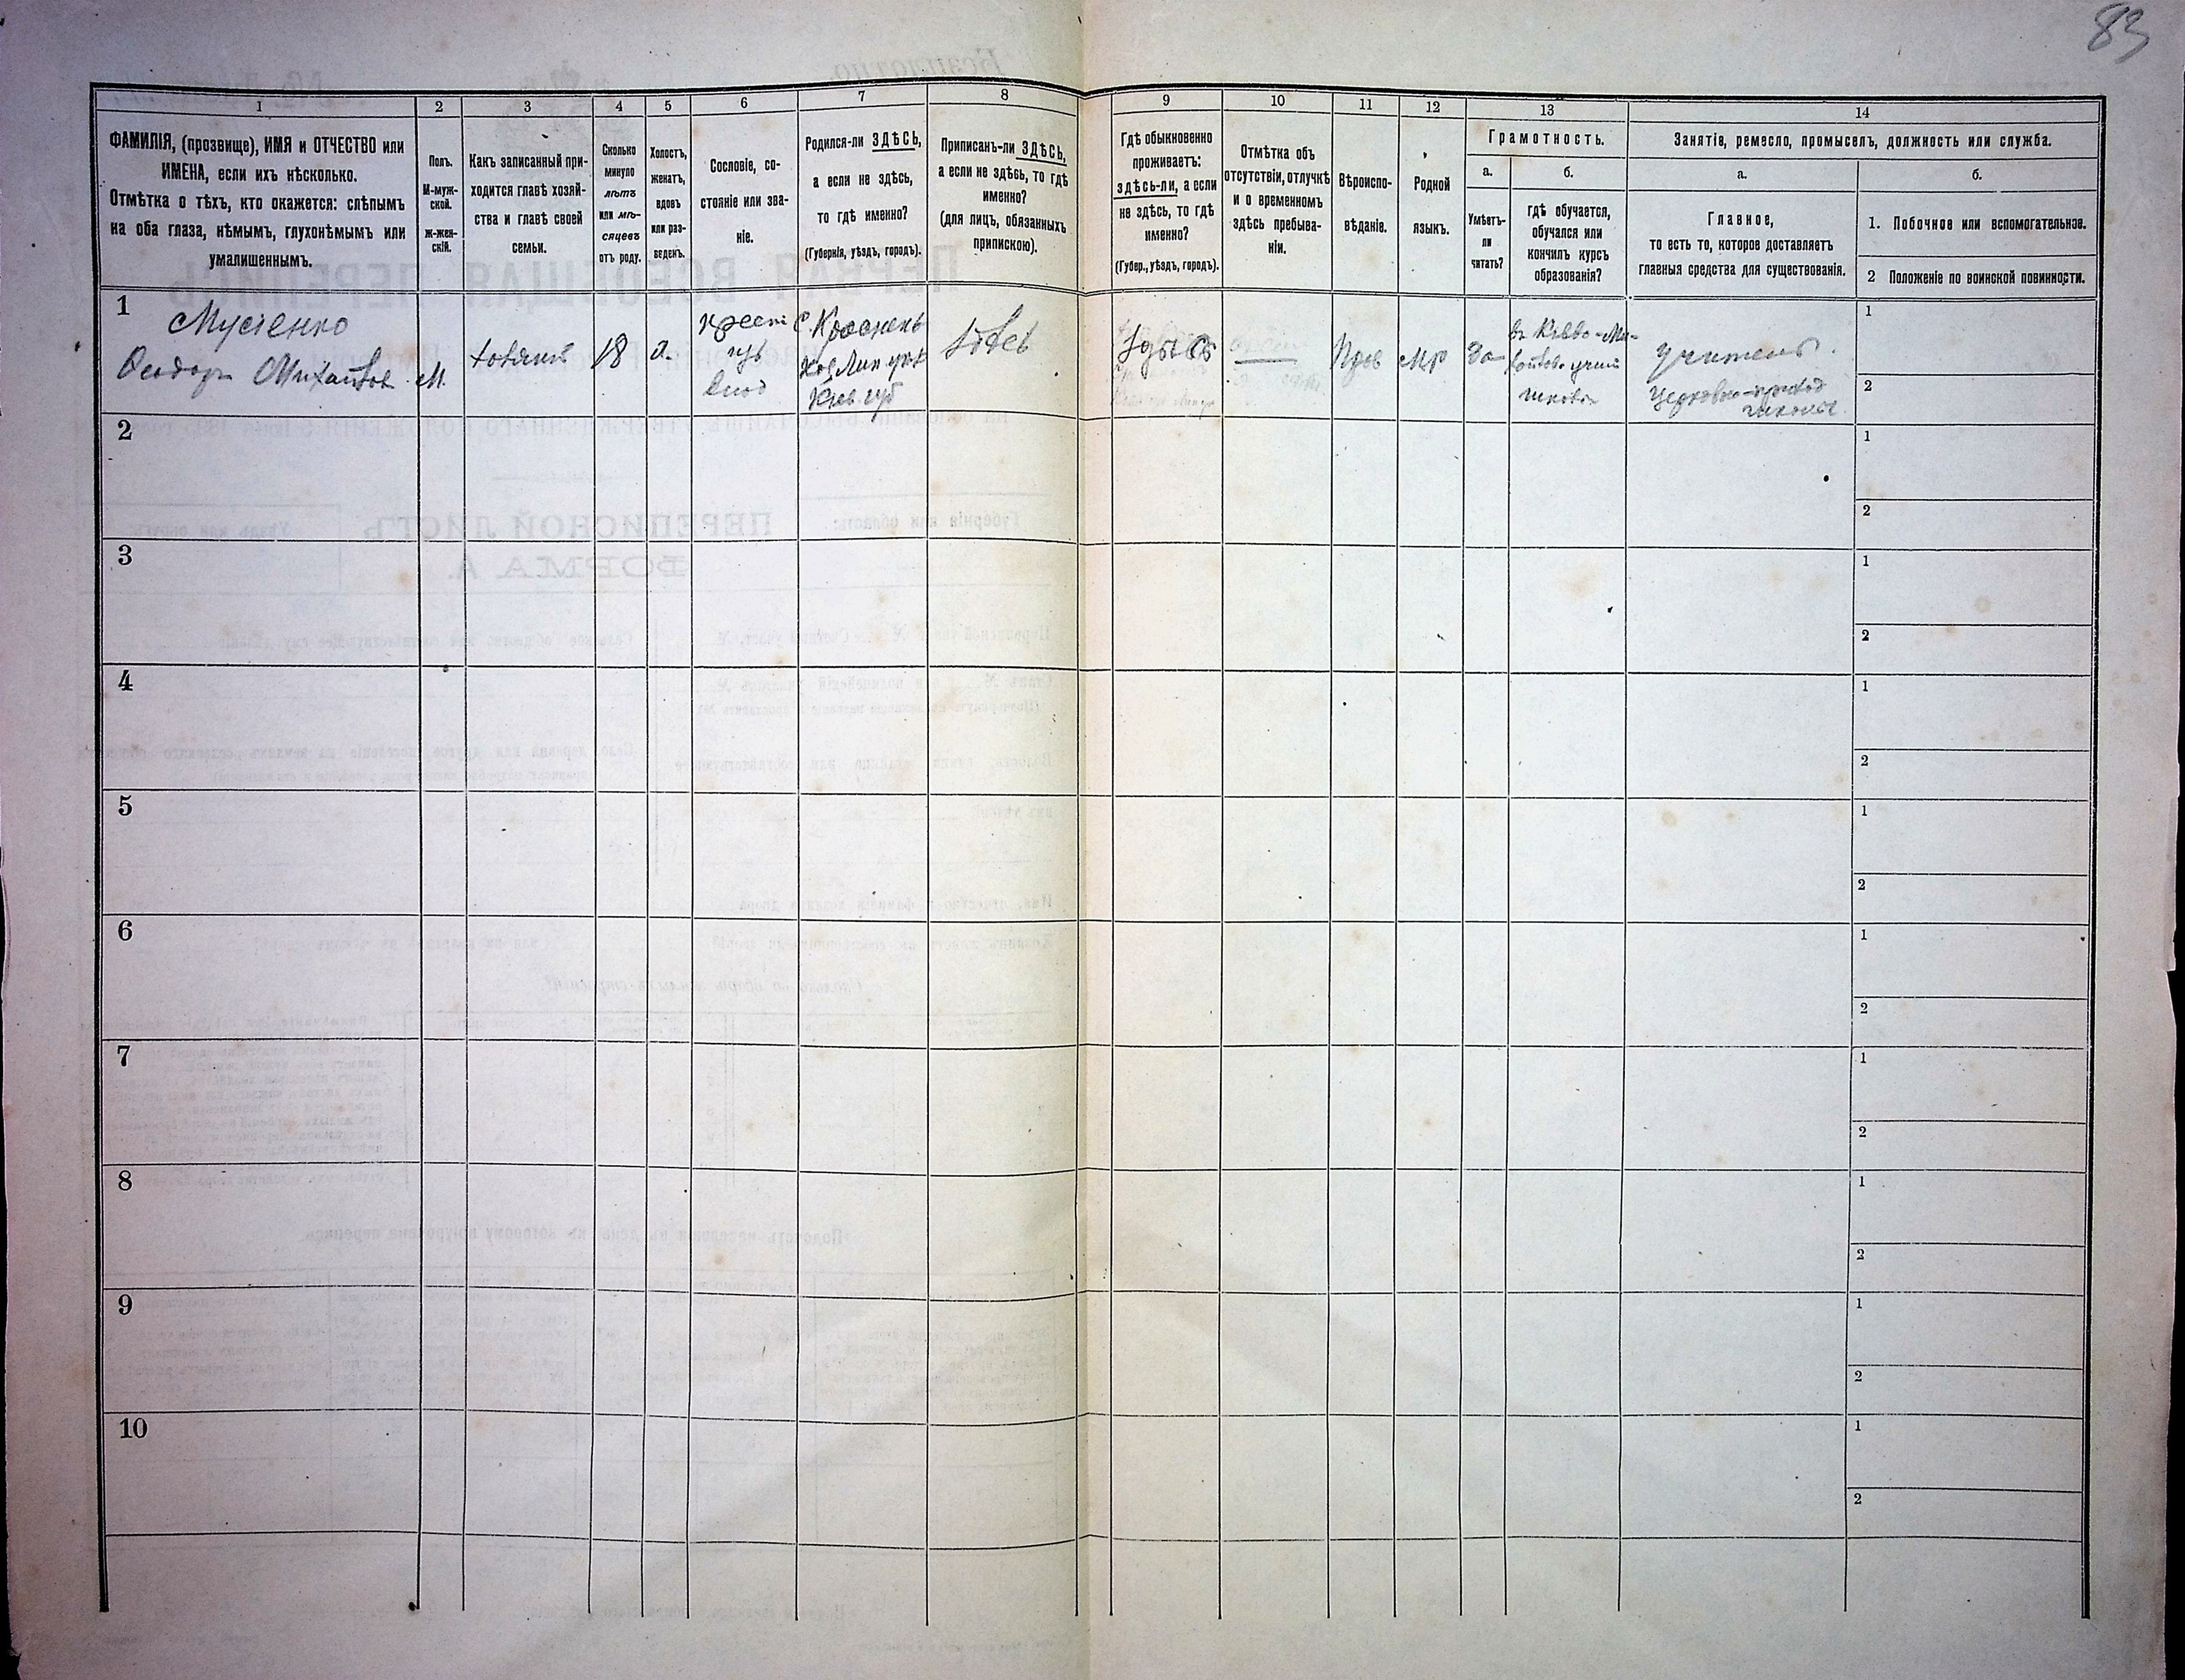 83
1
2
3
4
5
6
7
8
9
10
11
12
13
14
ФАМИЛІЯ, (прозвище), ИМЯ и ОТЧЕСТВО или
ИМЕНА, если ихъ нѣсколько.
Отмѣтка о тѣхъ, кто окажется: слѣпымъ
на оба глаза, нѣмымъ, глухонѣмымъ или
умалишеннымъ.
Полъ.
М-муж-
ской.
ж-жен-
скій.
Какъ записанный при-
ходится главѣ хозяй-
ства и главѣ своей
семьи.
Сколько
минуло
лѣтъ
или мѣ-
сяцевъ
отъ роду.
Холостъ,
женатъ,
вдовъ
или раз-
веденъ.
Сословіе, со-
стояніе или зва-
ніе.
Родился-ли ЗДѢСЬ,
а если не здѣсь,
то гдѣ именно?
(Губернія, уѣздъ, городъ).
Приписанъ-ли ЗДѢСЬ,
а если не здѣсь, то гдѣ
именно?
(для лицъ, обязанныхъ
припискою).
Гдѣ обыкновенно
проживаетъ:
здѣсь-ли, а если
не здѣсь, то гдѣ
именно?
(Губер., уѣздъ, городъ).
Отмѣтка объ
отсутствіи, отлучкѣ
и о временномъ
здѣсь пребыва-
ніи.
Вѣроиспо-
вѣданіе.
Родной
языкъ.
Грамотность.
а.
б.
Умѣетъ-
ли
читать?
гдѣ обучается,
обучался или
кончилъ курсъ
образованія?
Занятіе, ремесло, промыселъ, должность или служба.
а.
б.
Главное,
то есть то, которое доставляетъ
главныя средства для существованія.
1. Побочное или вспомогательное.
2 Положеніе по воинской повинности.
1
Мусіенко
Ѳеодоръ Михайлов.
М.
хозяинъ
18
х.
крест
изъ
С.
уѣз
Кіев. губ
здѣсь
здѣсь
Прав
Мр
да
учитель
церковно-приход
школы.
1
2
2
1
2
3
1
2
4
1
2
5
1
2
6
1
2
7
1
2
8
1
2
9
1
2
10
1
2